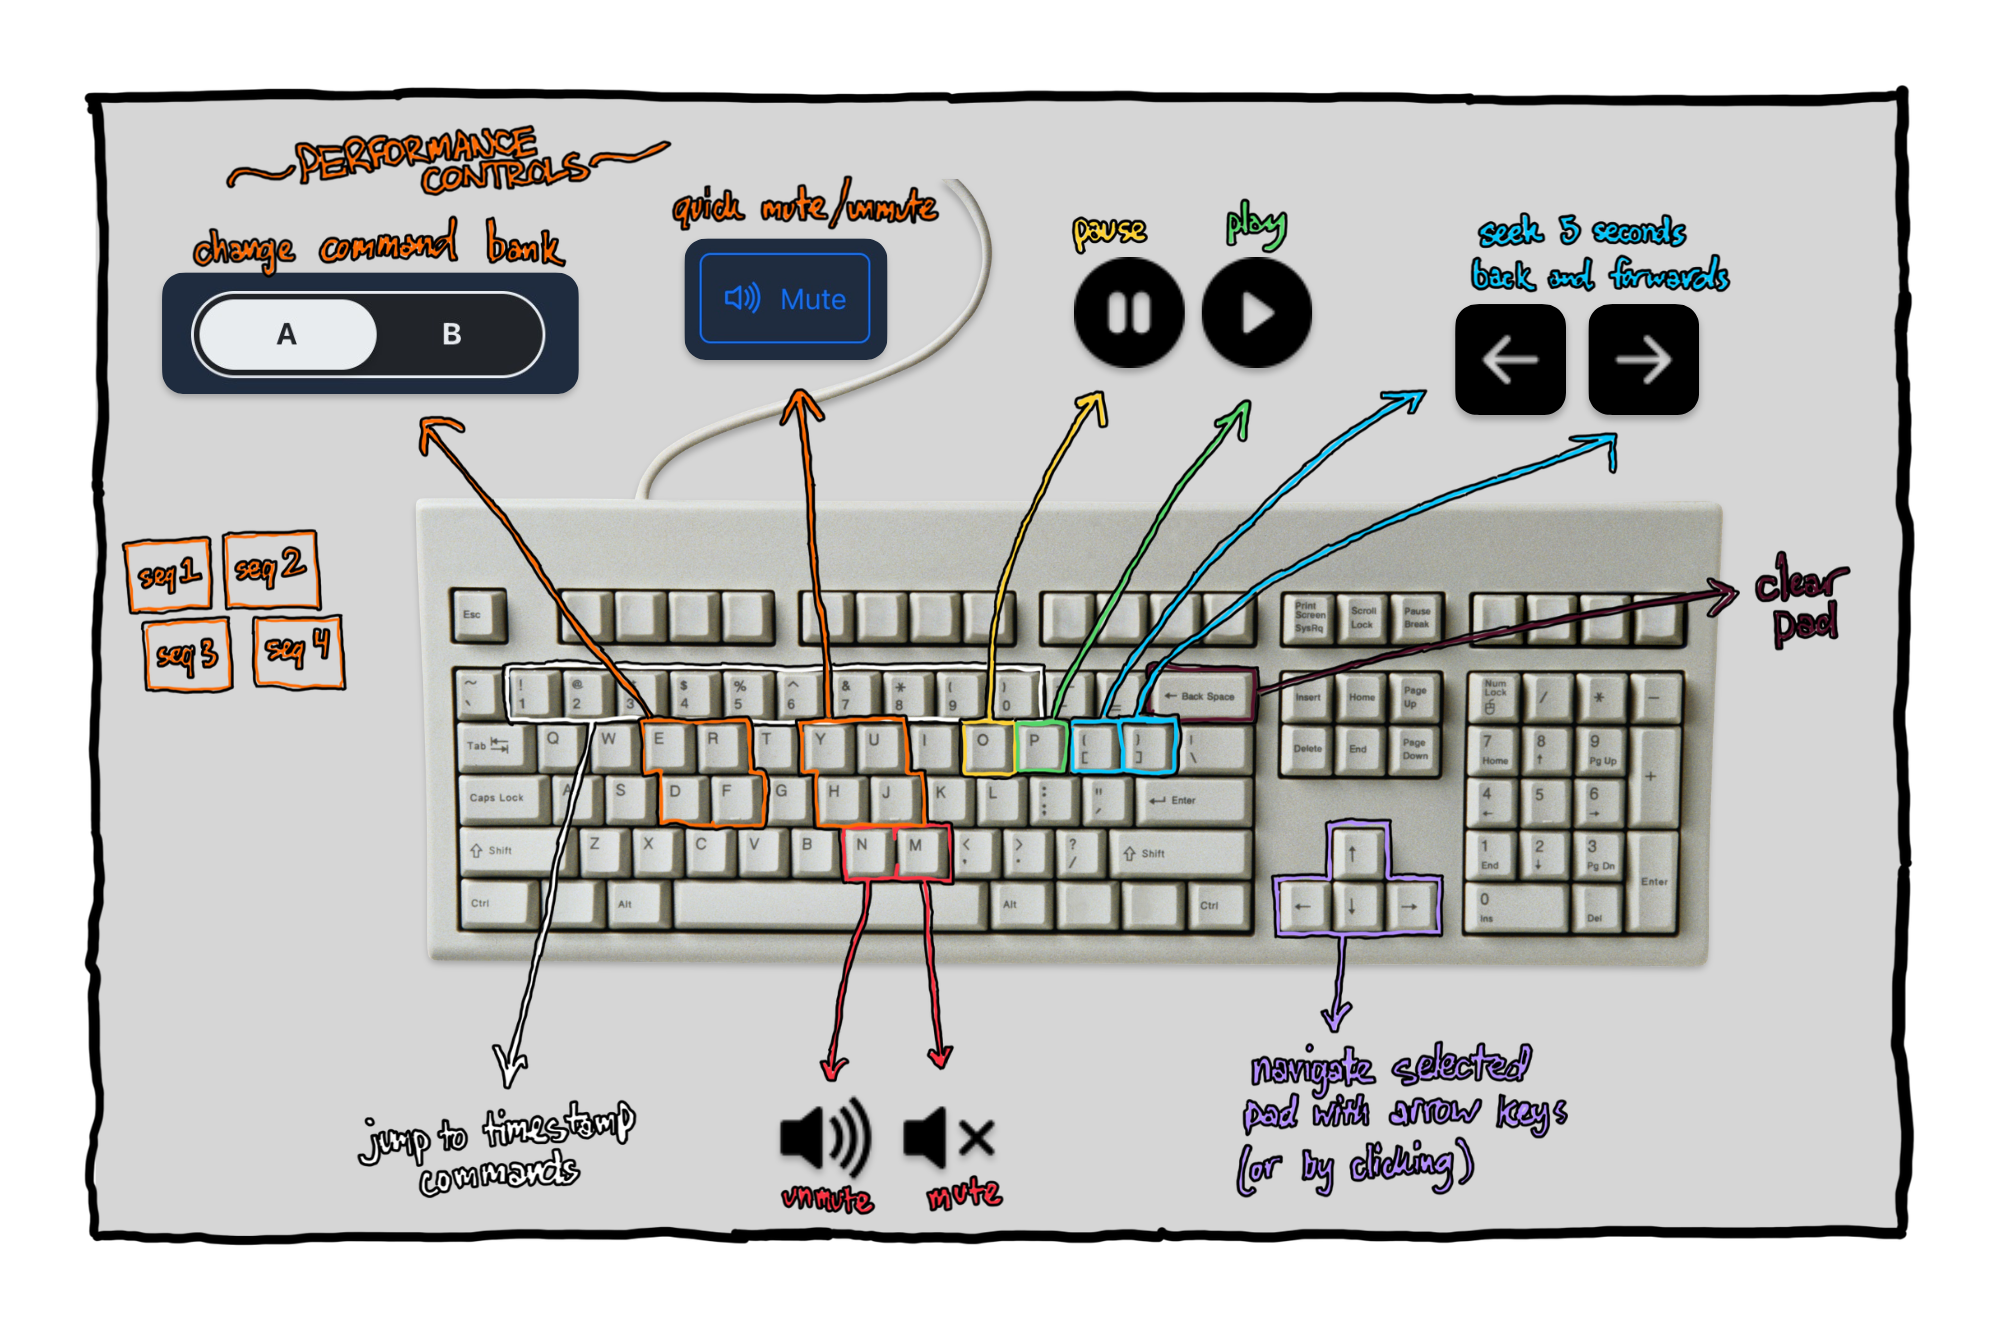 PERFORMANCE
CONTROLS
change command bank
A B
quick mute/unmute
Mute
pause
play
seek 5 seconds
back and forwards
seq 1 seq 2
seq 3 seq 4
clear
pad
Esc
Print Screen SysRq
Scroll Lock
Pause Break
~ `
! 1
@ 2
3
$ 4
% 5
^ 6
& 7
* 8
( 9
) 0
← Back Space
Insert Home Page Up
Num Lock / * −
Tab Q W E R T Y U I O P { [ } ] | \
Delete End Page Down
7 Home 8 ↑ 9 Pg Up +
Caps Lock A S D F G H J K L : ; " ' ↵ Enter
4 ← 5 6 →
⇧ Shift Z X C V B N M < , > . ? / ⇧ Shift
↑
1 End 2 ↓ 3 Pg Dn Enter
Ctrl Alt Alt Ctrl
← ↓ →
0 Ins Del
jump to timestamp
commands
unmute
mute
navigate selected
pad with arrow keys
(or by clicking)